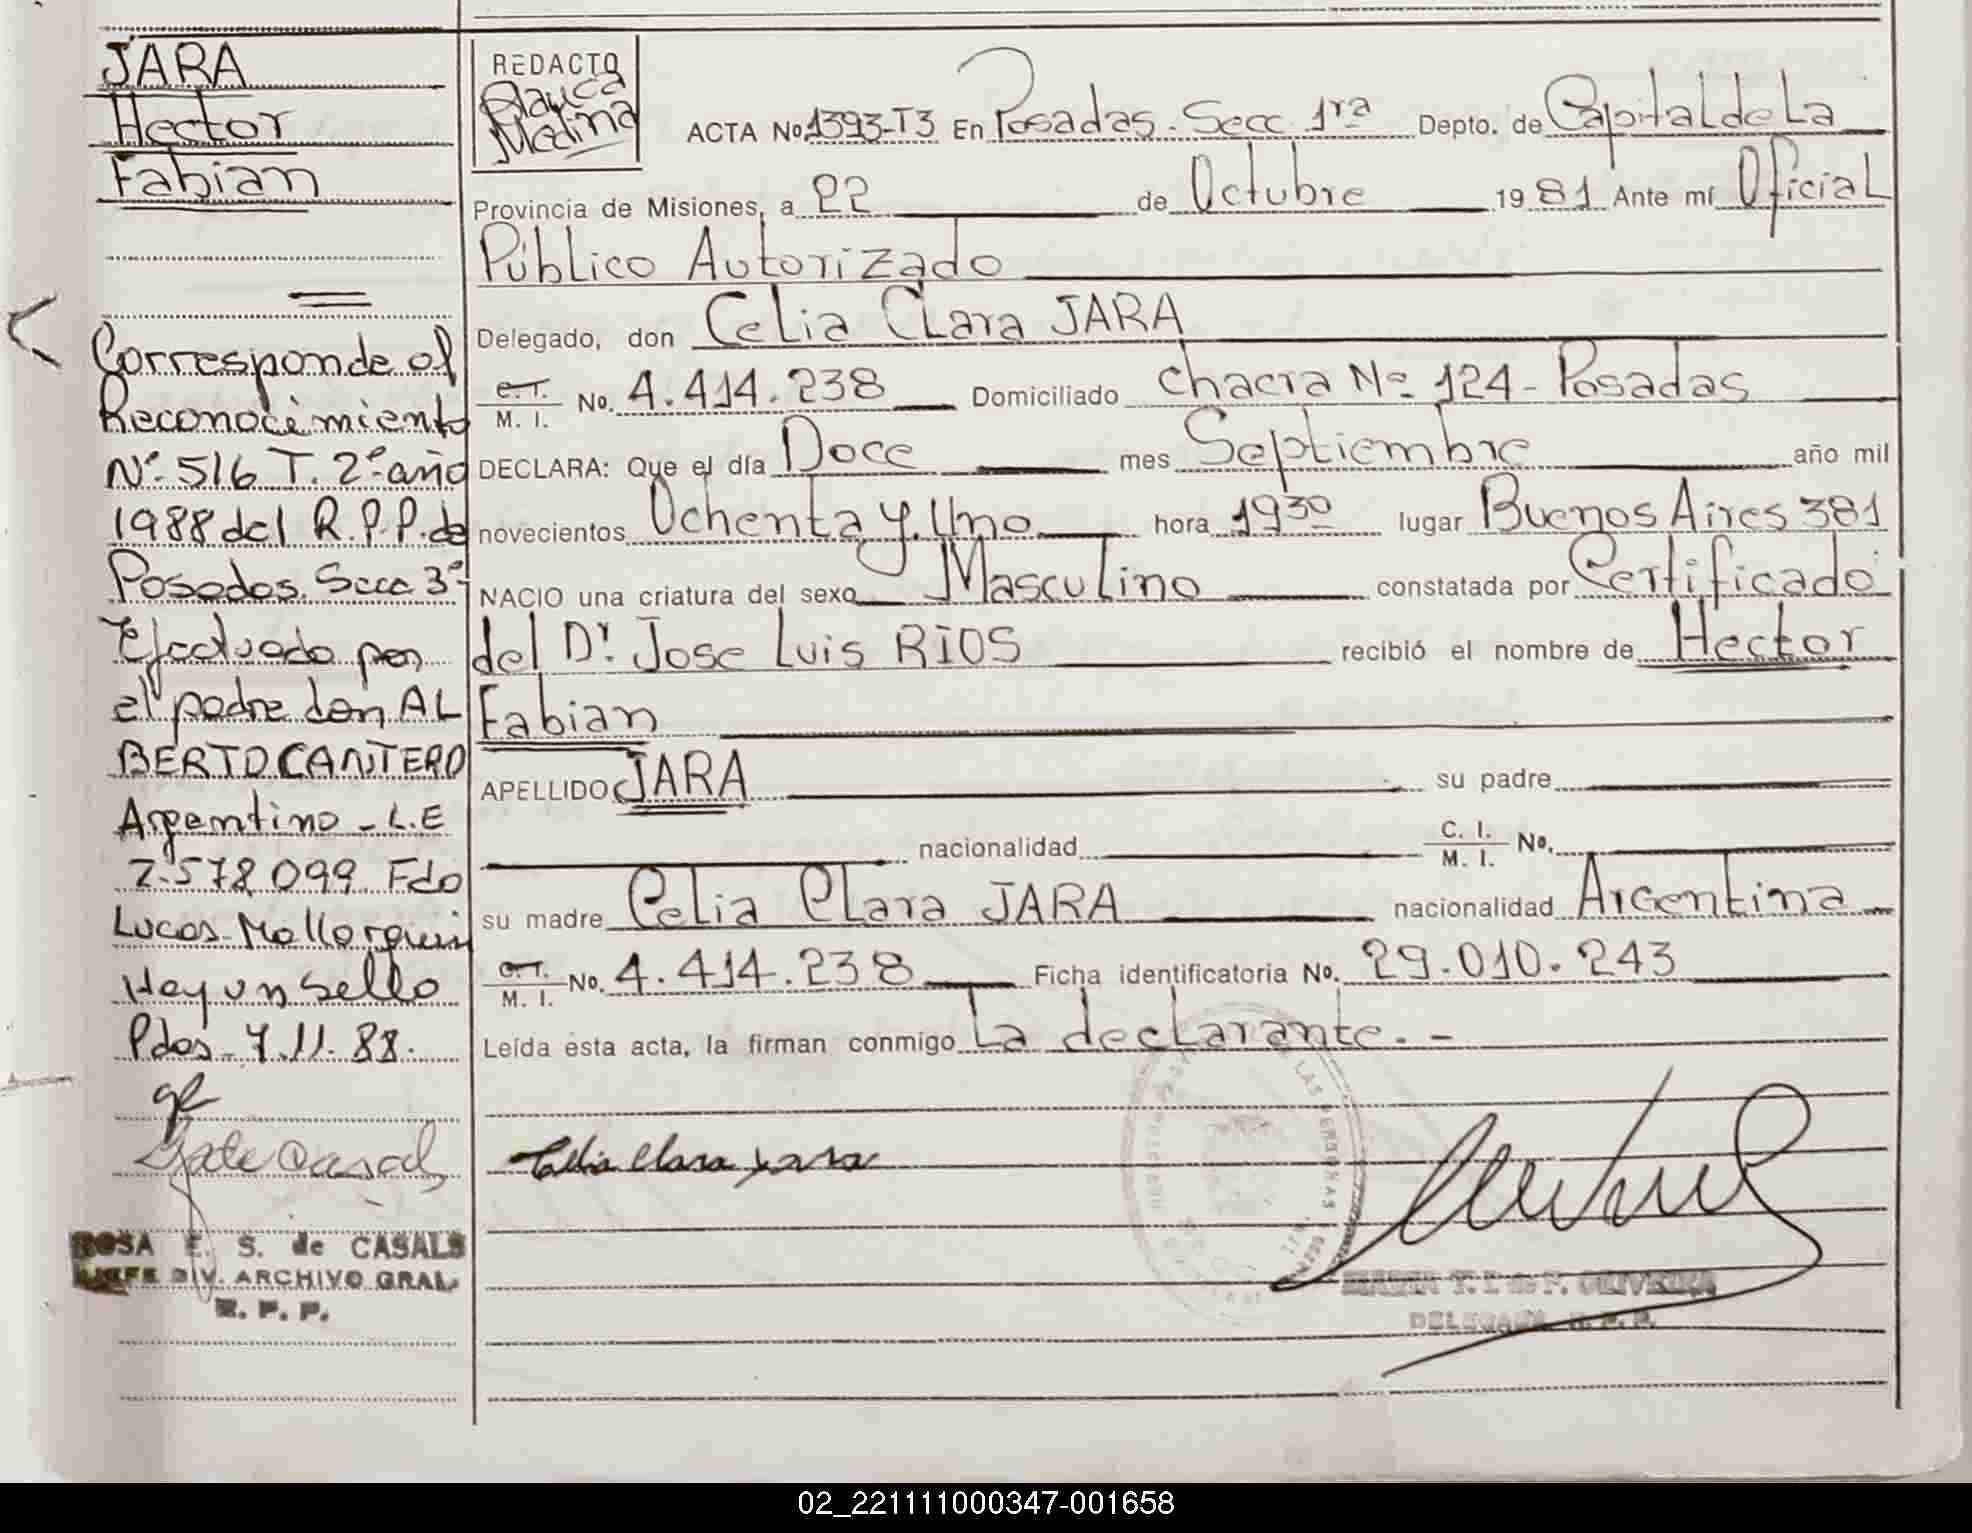 JARA
Hector
Fabian
Corresponde al
Reconocimiento
Nº 516 T. 2º año
1988 del R.P.P. de
Posadas Secc 3ª
Efectuado por
el padre don AL
BERTO CANTERO
Argentino - L.E
7.578.099 Fdo
Lucas Mallorquin
Hay un sello
Pdas 7.11.88.
ROSA E. S. de CASALS
JEFE DIV. ARCHIVO GRAL.
R. P. P.
REDACTO
Glauca
Medina
ACTA No 1393-T3 En Posadas. Secc 1ra Depto. de Capital de La
Provincia de Misiones, a 22 de Octubre 1981 Ante mí Oficial
Público Autorizado
Delegado, don Celia Clara JARA
C.I. / M. I. No. 4.414.238 Domiciliado Chacra Nº 124 - Posadas
DECLARA: Que el día Doce mes Septiembre año mil
novecientos Ochenta y Uno hora 1930 lugar Buenos Aires 381
NACIO una criatura del sexo Masculino constatada por Certificado
del Dr. Jose Luis RIOS recibió el nombre de Hector
Fabian
APELLIDO JARA su padre
nacionalidad C. I. / M. I. No.
su madre Celia Clara JARA nacionalidad Argentina
C.I. / M. I. No. 4.414.238 Ficha identificatoria No. 29.010.243
Leída esta acta, la firman conmigo La declarante. -
Celia Clara Jara
DE LAS PERSONAS
OLIVEIRA
DELEGADA R. P. P.
02_221111000347-001658